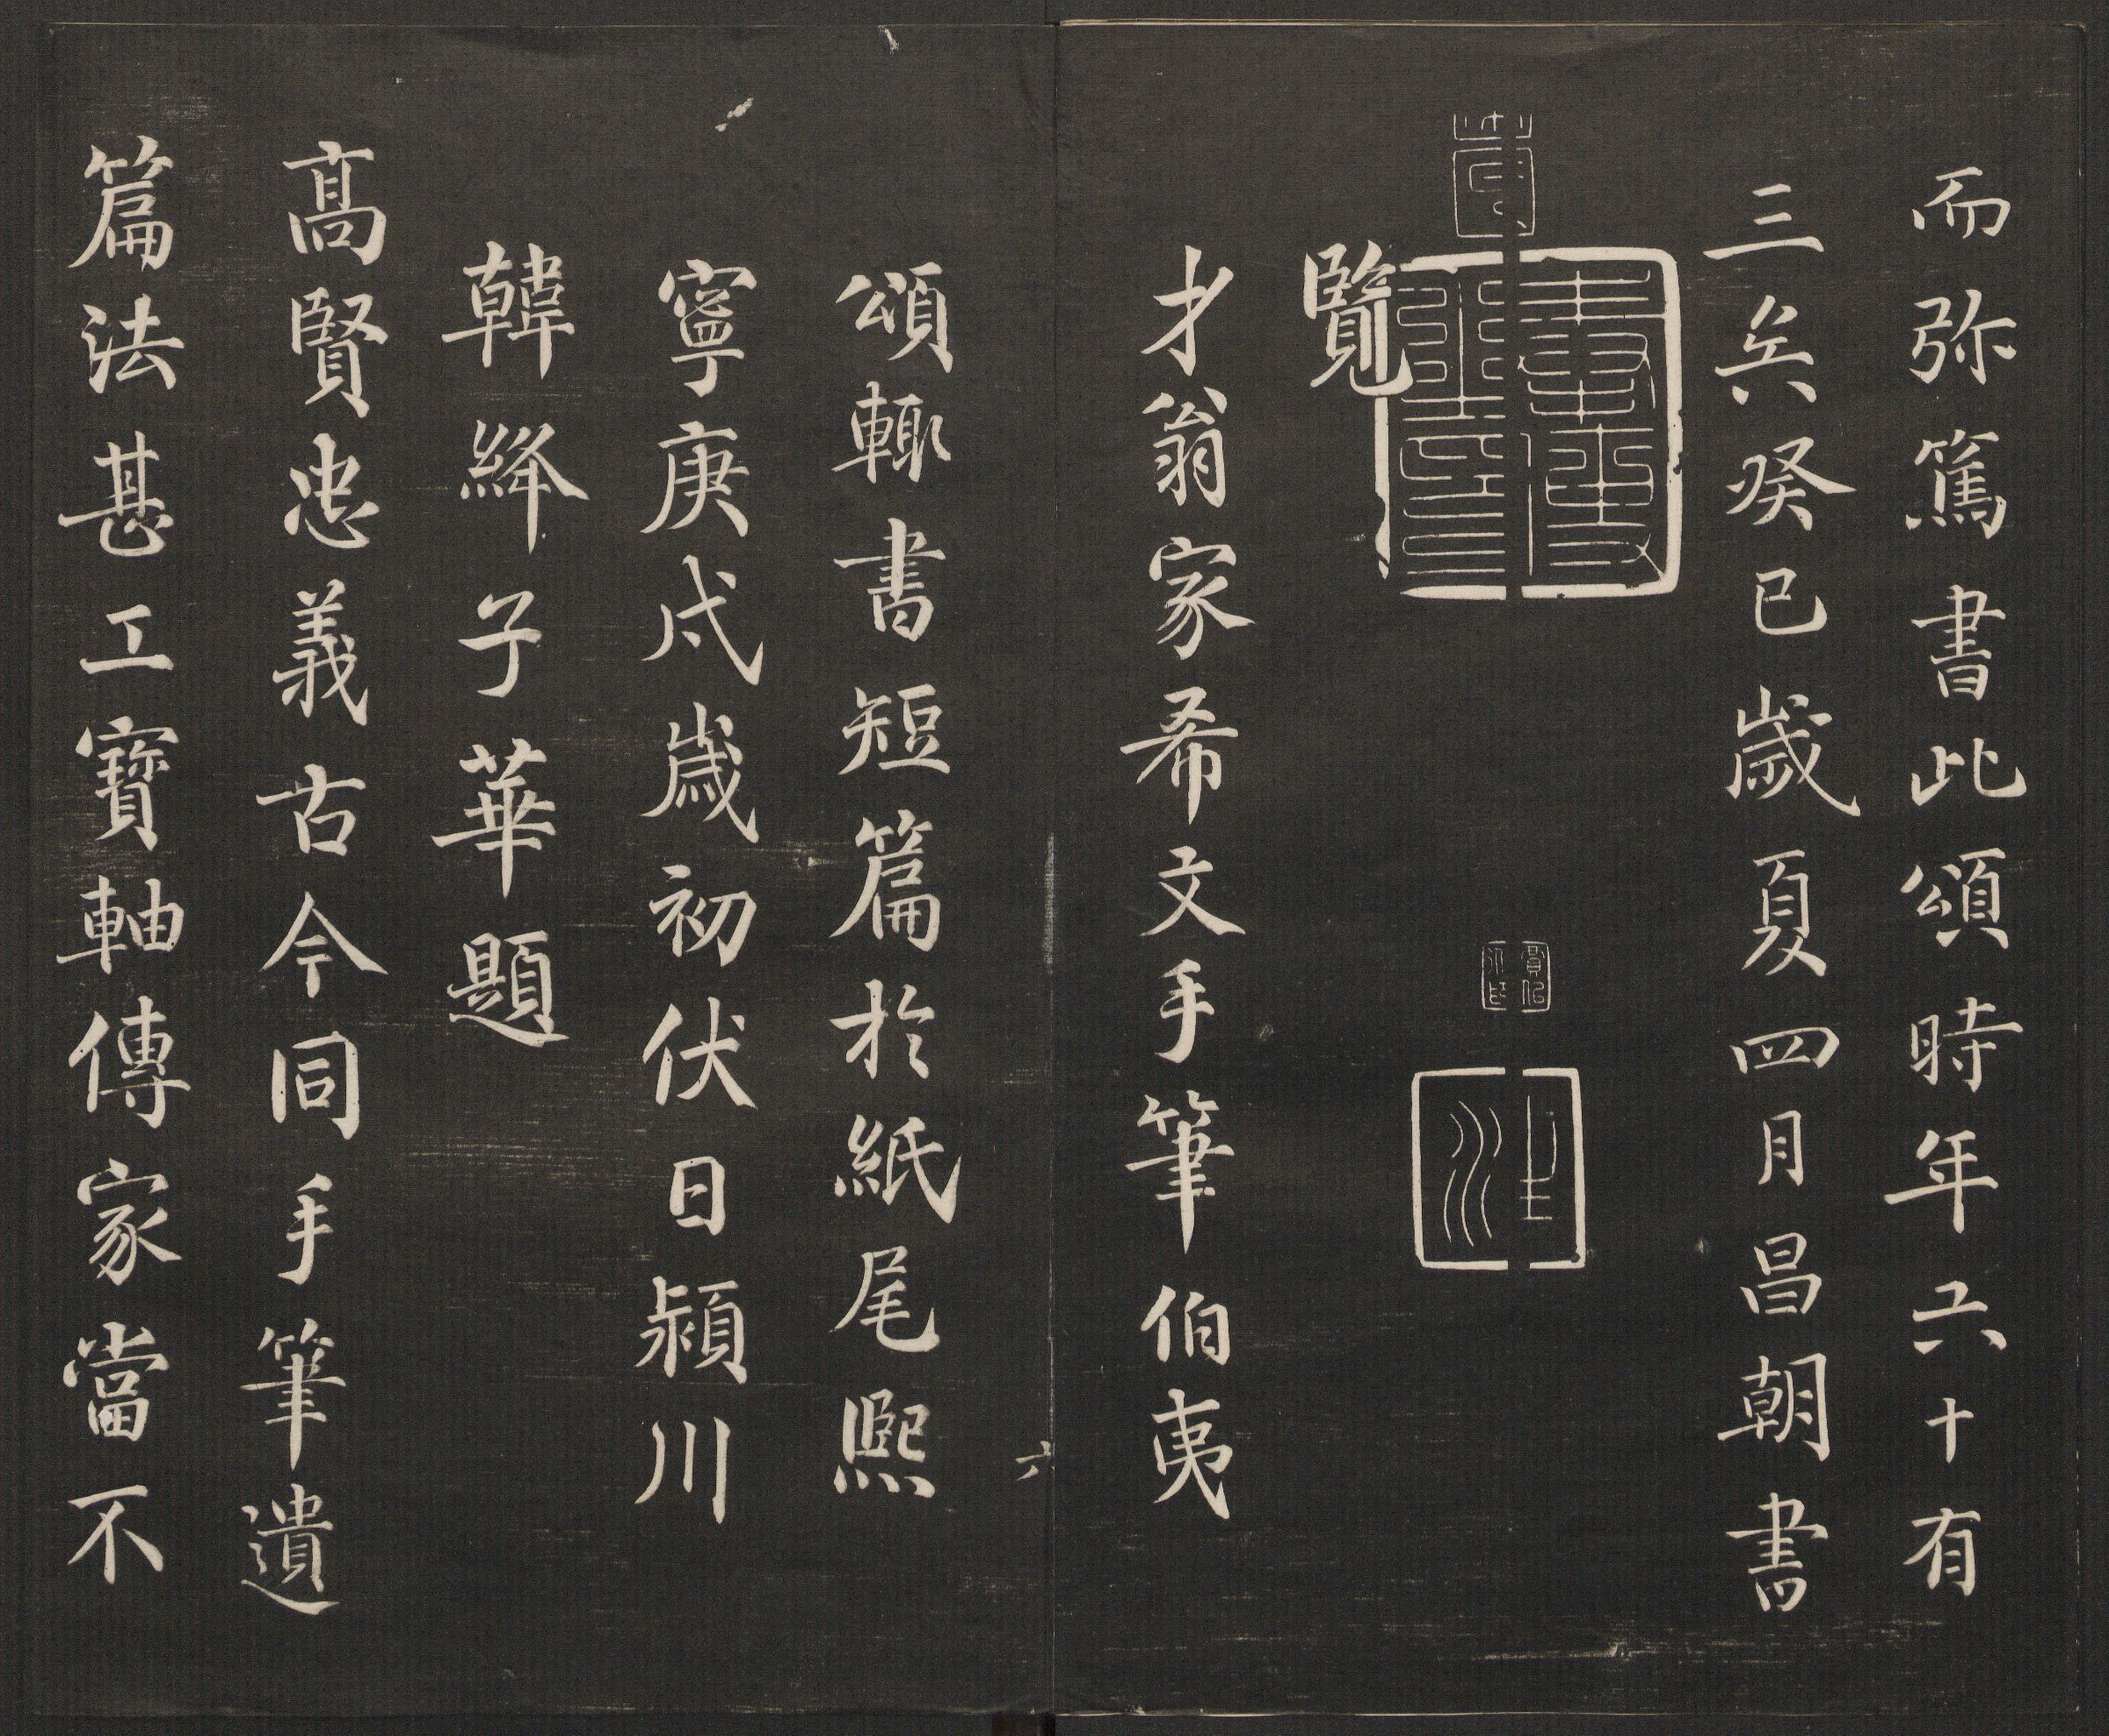 而弥篤書此頌時年六十有
三矣癸巳歲夏四月昌朝書
覽
才翁家希文手筆伯夷
頌輙書短篇於紙尾熈
寧庚戌歲初伏日潁川
韓絳子華題
高賢忠義古今同手筆遺
篇法甚工寶軸傳家當不
六